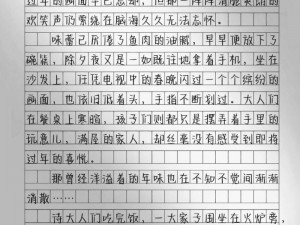 过年的画面早已忘却，但那一阵阵清脆爽朗的
欢笑声仍萦绕在脑海久久无法忘怀。
味蕾已厌倦了鱼肉的油腻，早早便放下了
碗筷，除夕夜又是一如既往地拿着手机，坐在
沙发上，任凭电视中的春晚闪过一个个缤纷的
画面，也依旧低着头，手指不断划过。大人们
在餐桌上寒暄，孩子们则都只是摆弄着手里的
玩意儿，满屋的家人，却丝毫没有感受到即将
过年的喜悦。
那曾经洋溢着的年味也在不知不觉间渐渐
消散……
待大人们吃完饭，一大家子围坐在火炉旁，